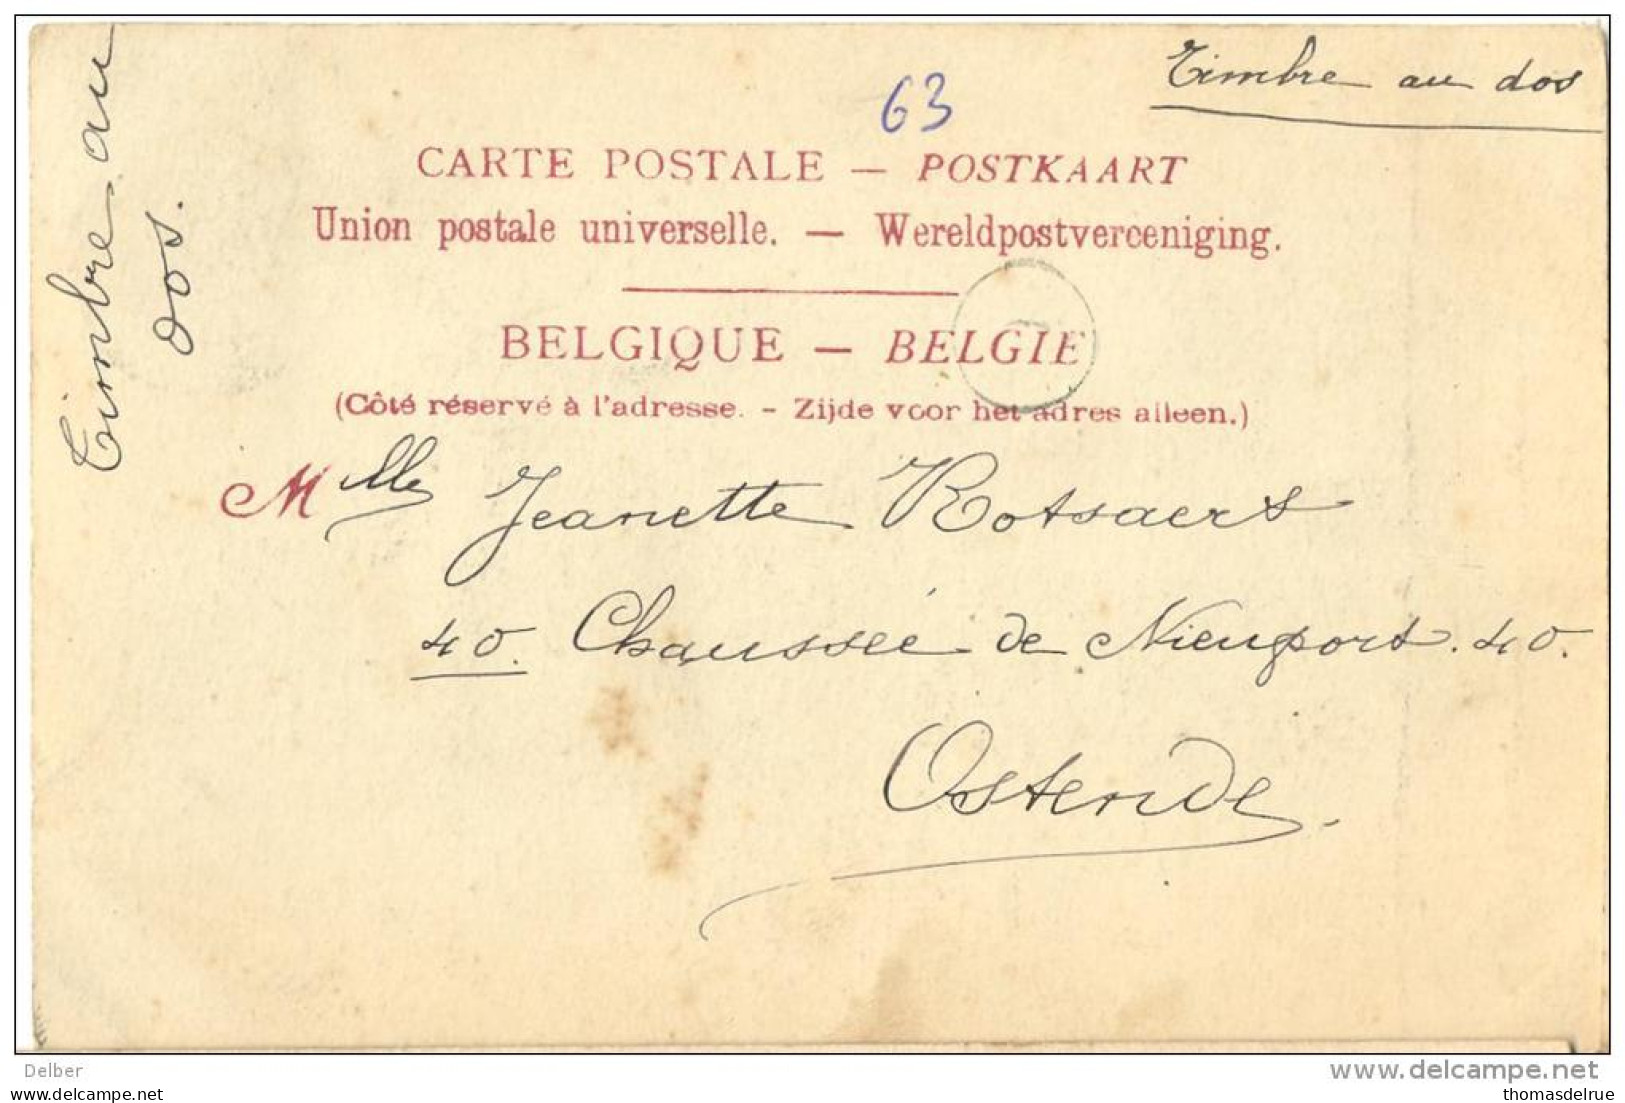 Timbre au dos
Timbre au
dos.
63
CARTE POSTALE — POSTKAART
Union postale universelle. — Wereldpostvereeniging.
BELGIQUE — BELGIE
(Côté réservé à l'adresse. - Zijde voor het adres alleen.)
Mlle Jeanette Rotsaert
40. Chaussée de Nieuport. 40.
Ostende.
Delber
www.delcampe.net
thomasdelrue